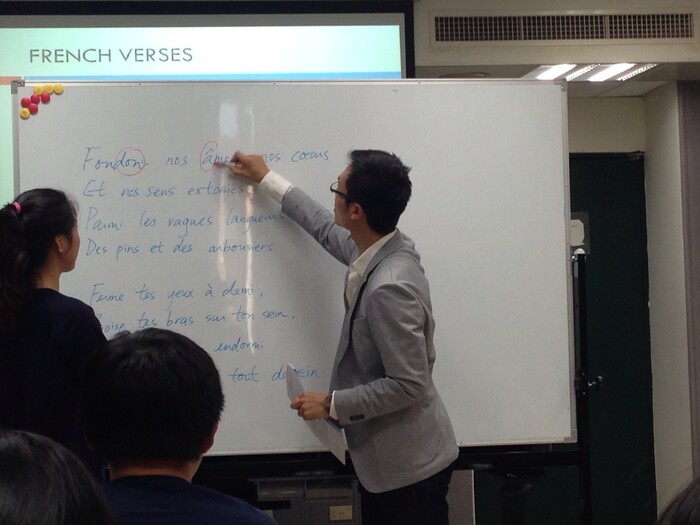 FRENCH VERSES
Fondons nos âmes nos cœurs
Et nos sens extasiés
Parmi les vagues langueurs
Des pins et des arbousiers
Ferme tes yeux à demi,
tes bras sur ton sein,
endormi
tout dessein